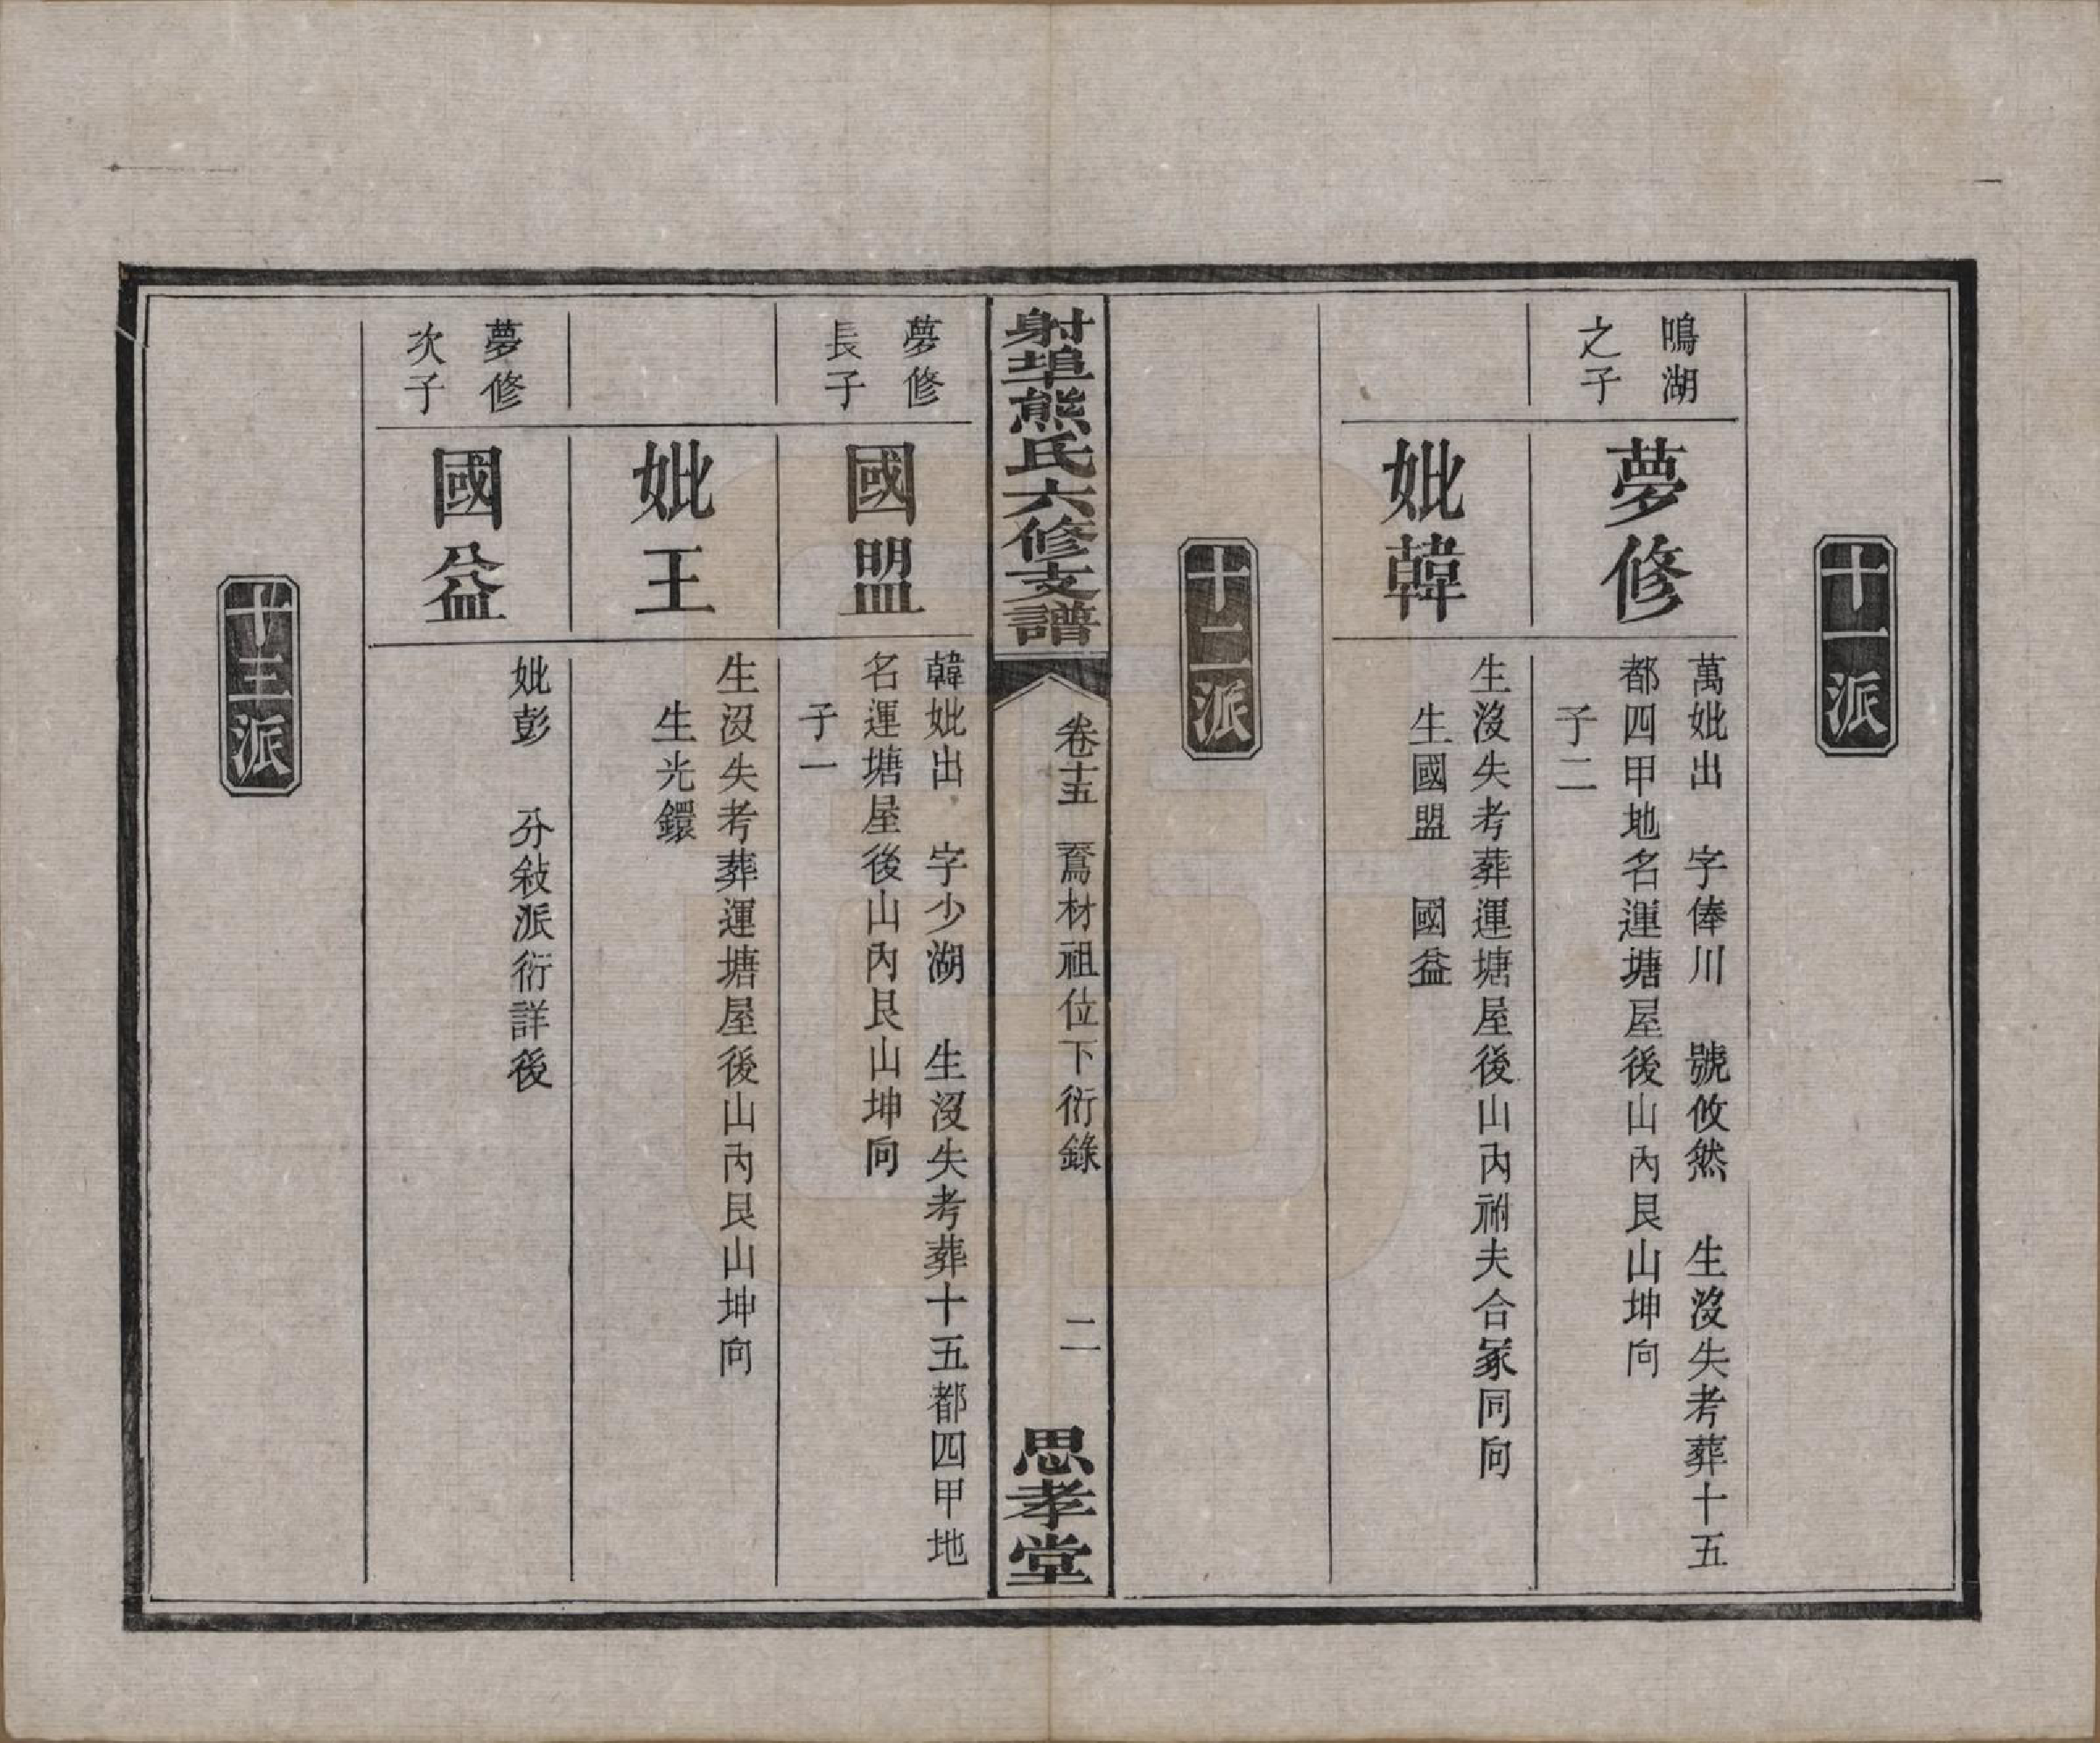 十一派
鳴湖
之子
夢修
萬妣出　字俸川　號攸然　生沒失考葬十五
都四甲地名運塘屋後山內艮山坤向
子二
妣韓
生沒失考葬運塘屋後山內祔夫合冢同向
生國盟　國益
十二派
射埠熊氏六修支譜
卷十五　鴌材祖位下衍錄　二
思孝堂
夢修
長子
國盟
韓妣出　字少湖　生沒失考葬十五都四甲地
名運塘屋後山內艮山坤向
子一
妣王
生沒失考葬運塘屋後山內艮山坤向
生光鐶
夢修
次子
國益
妣彭　分敍派衍詳後
十三派